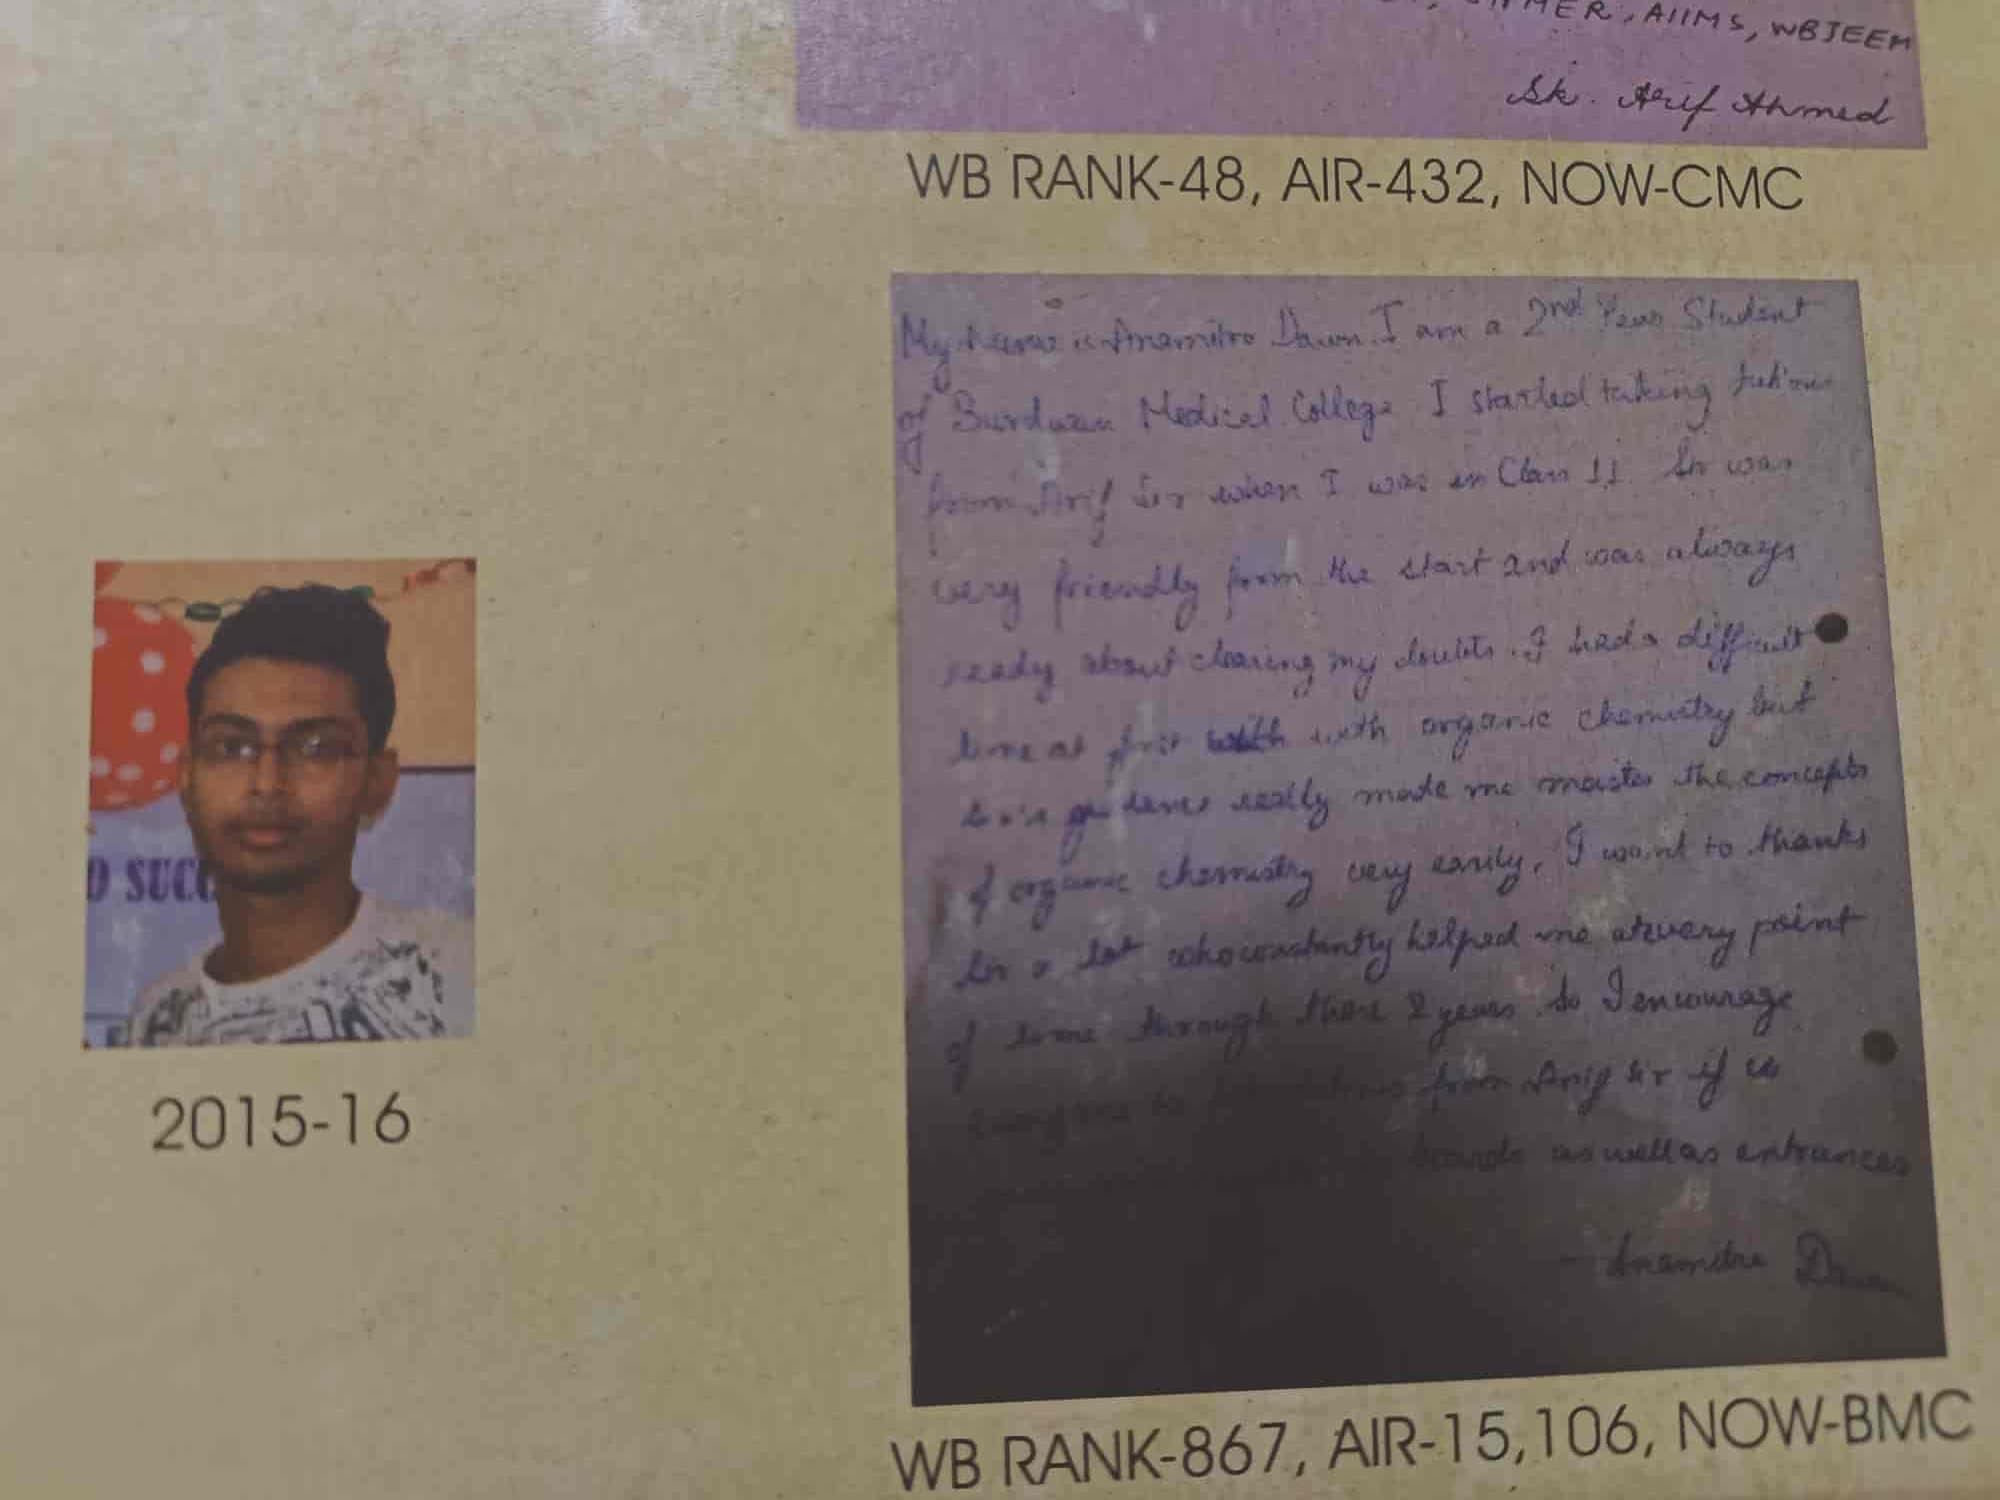 AIIMS, WBJEEM
Sk. Arif Ahmed
WB RANK-48, AIR-432, NOW-CMC
My name is Anamitro Dawn. I am a 2nd Year Student
of Burdwan Medical College I started taking tution
from Arif Sir when I was in Class 11. Sir was
very friendly from the start and was always
ready about clearing my doubts. I had a difficult
time at first with with organic chemistry but
Sir's guidance really made me master the concepts
of organic chemistry very easily. I want to thanks
Sir a lot who constantly helped me at every point
of time through these 2 years. So I encourage
to from Arif Sir if u
boards as well as entrances
- Anamitra Dawn
D SUCC
2015-16
WB RANK-867, AIR-15,106, NOW-BMC